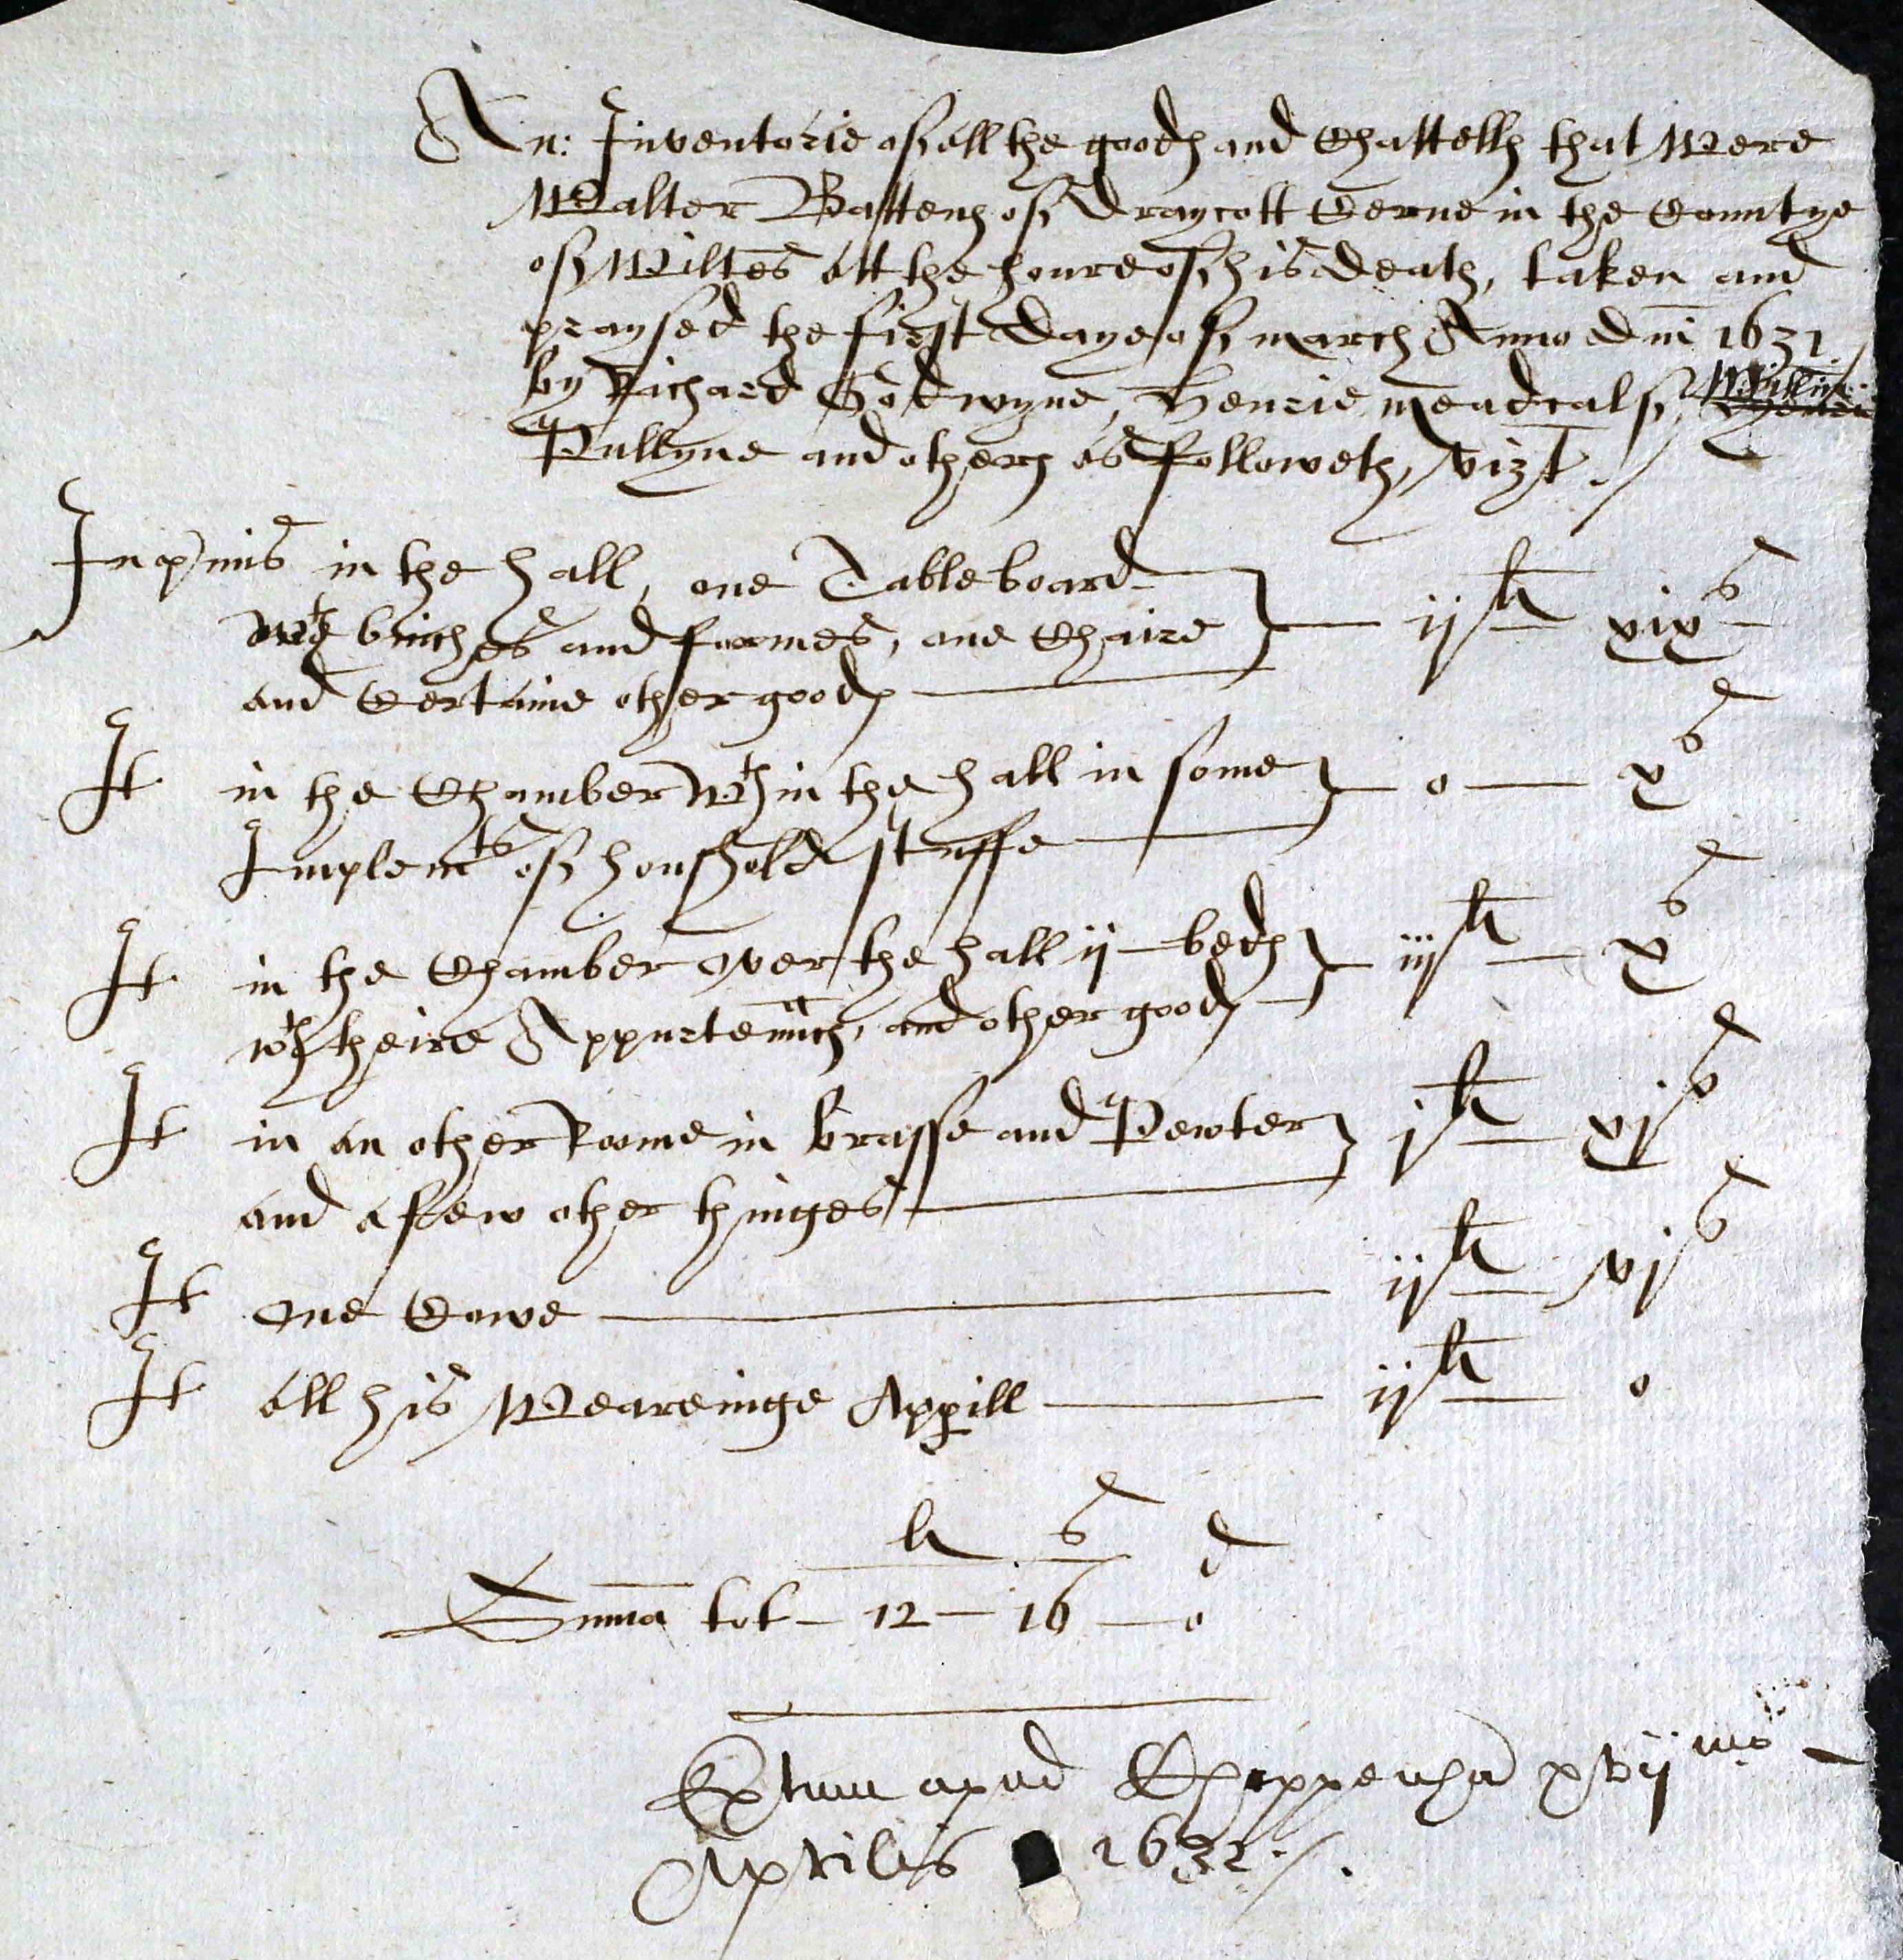 An: Inventorie of all the goodes and Chattells that were
Walter Battens of Draycott Cerne in the Countye
of Wiltes att the houre of his death, taken and
praysed the first daye of march Anno dni 1631
by Richard Godwyne, Henrie meadcalf, Willm
Pullyne and others as Followeth, vizt.
Inpmis in the hall, one Table board
wth binches and formes, one Chaire — ijli xixs
and Certaine other goods
It in the Chamber wthin the hall in some — o — xs
Implemts of houshold stuffe
It in the Chamber over the hall ij beds — iijli — xs
wth theire Appurtennces, and other goods
It in an other Roome in brasse and Pewter — jli — xjs
and a few other thinges
It one Cowe — ijli — vjs
It all his Weareinge Appill — ijli — o
li s d
Summa tot — 12 — 16 — o
Extum apud Chippenham xvijmo
Aprilis 1632